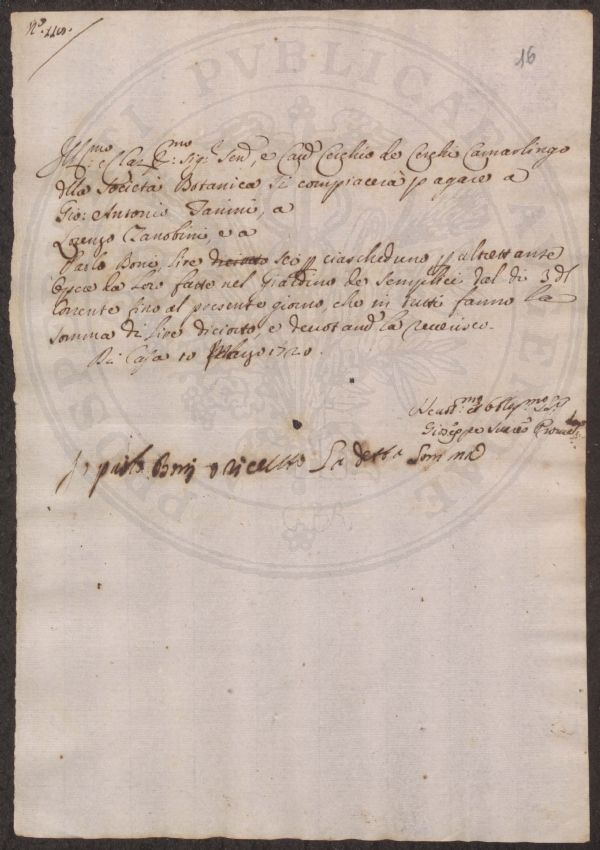 N.º 110.
16
Ill.mo e Cla.mo Sig.e Sen.e, e Cav.e Cerchio de Cerchi Camarlingo
della Società Botanica si compiacerà pagare a
Gio: Antonio Fanini, a
Lorenzo Zanobini, e a
Paolo Boni, lire diciotto sei p ciascheduno p altrettante
Opere da Loro fatte nel Giardino de Semplici dal dì 3 del
Corrente fino al presente giorno, che in tutti fanno la
somma di lire diciotto, e devotand.e la reverisco.
Di Casa 10 Marzo 1720.
Devot.mo et Obblig.mo
Giuseppe
Io paolo Boni o riceuto La detta Somma